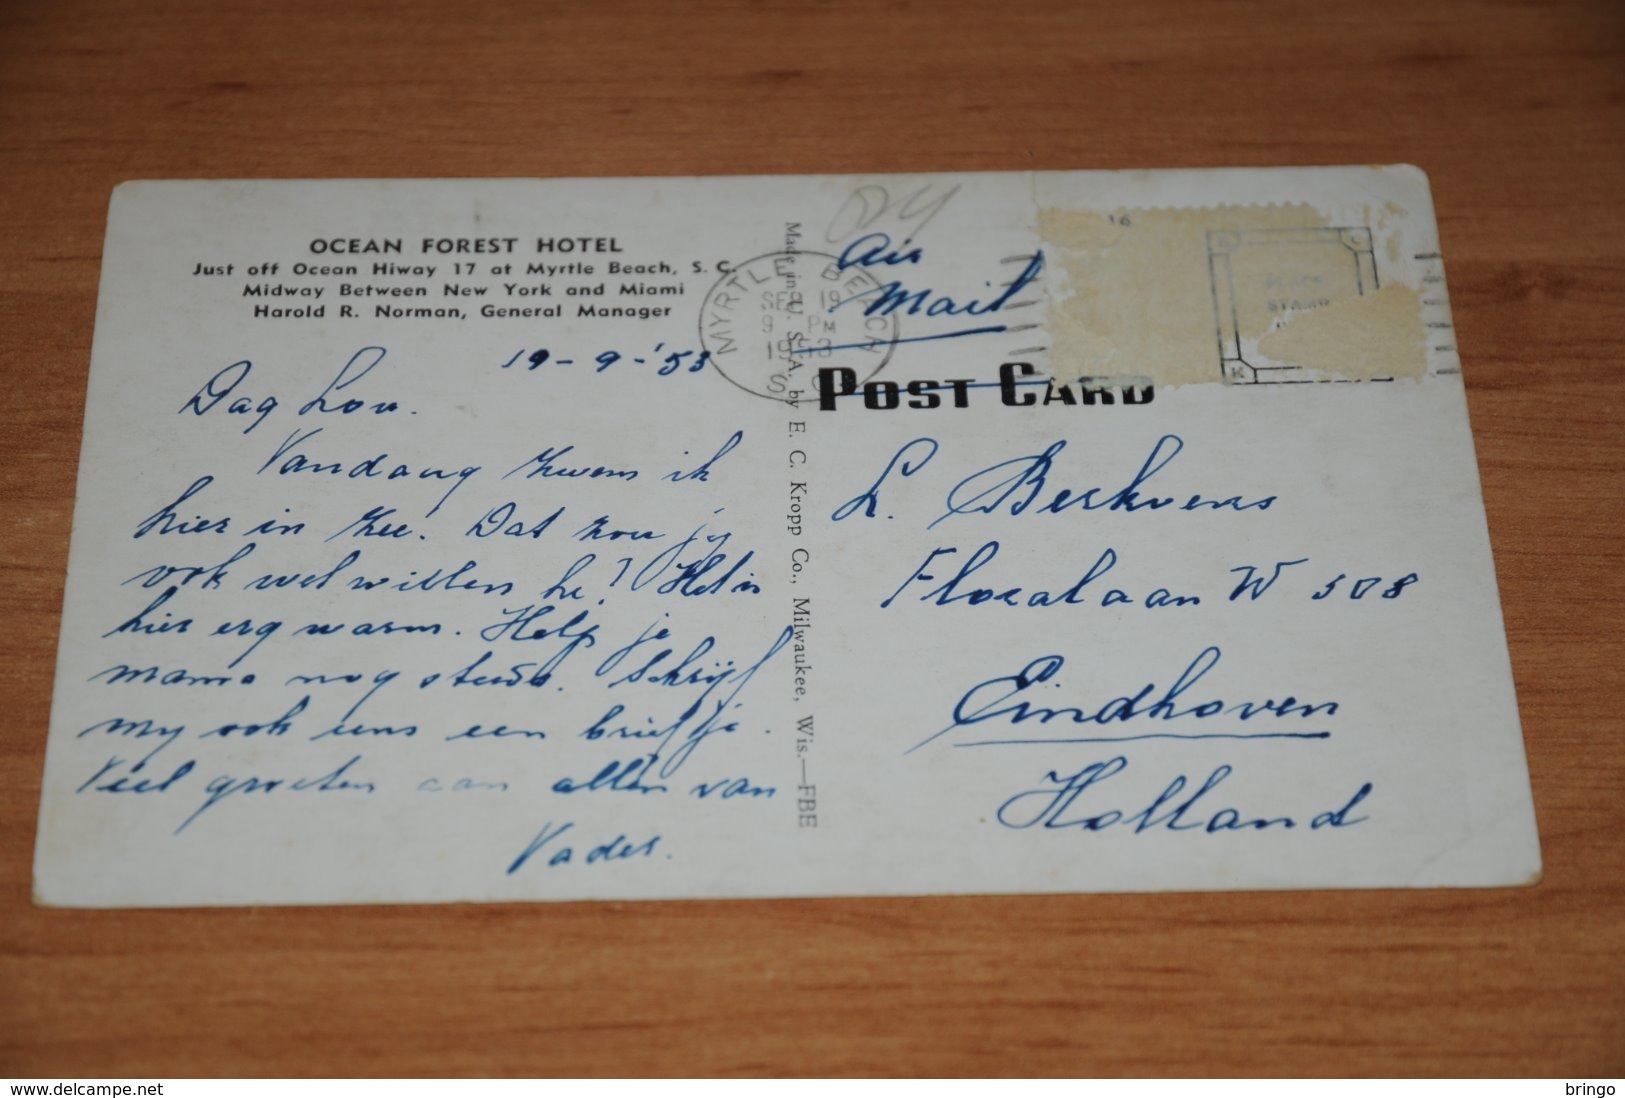 OCEAN FOREST HOTEL
Just off Ocean Hiway 17 at Myrtle Beach, S. C.
Midway Between New York and Miami
Harold R. Norman, General Manager
19-9-'53
Dag Lou.
Vandaag zwom ik
hier in zee. Dat zou jy
ook wel willen hè? Het is
hier erg warm. Help je
mama nog steeds. Schrijf
my ook eens een briefje.
Veel groeten aan allen van
Vader.
Made in U. S. A. by E. C. Kropp Co., Milwaukee, Wis.—FBE
Air
Mail
MYRTLE BEACH
19
PM
S C
16
STAMP
K
POST CARD
L. Berkvens
Floralaan W 508
Eindhoven
Holland
delcampe.net
bringo